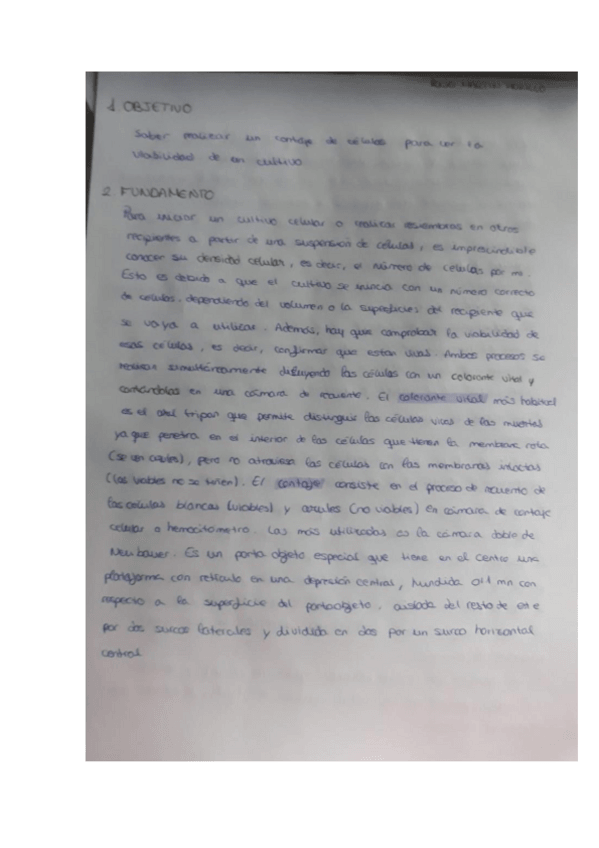 1. OBJETIVO
Saber realizar un contaje de células para ver la
viabilidad de un cultivo
2. FUNDAMENTO
Para iniciar un cultivo celular o realizar resiembras en otros
recipientes a partir de una suspensión de células, es imprescindible
conocer su densidad celular, es decir, el número de células por ml.
Esto es debido a que el cultivo se inicia con un número correcto
de células, dependiendo del volumen o la superficie del recipiente que
se vaya a utilizar. Además, hay que comprobar la viabilidad de
esas células, es decir, confirmar que estan vivas. Ambos procesos se
realizan simultáneamente diluyendo las células con un colorante vital y
contándolas en una cámara de recuento. El colorante vital más habitual
es el azul tripan que permite distinguir las células vivas de las muertas
ya que penetra en el interior de las células que tienen la membrana rota
(se ven azules), pero no atraviesa las células con las membranas intactas
(las viables no se tiñen). El contaje consiste en el proceso de recuento de
las células blancas (viables) y azules (no viables) en cámara de contaje
celular o hemocitómetro. Las más utilizadas es la cámara doble de
Neubauer. Es un porta objeto especial que tiene en el centro una
plataforma con retículo en una depresión central, hundida 0'1 mm con
respecto a la superficie del portaobjeto, aislada del resto de este
por dos surcos laterales y dividida en dos por un surco horizontal
central.